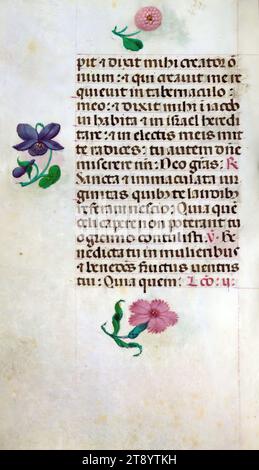 pit et dixit mihi creator o
nium: et qui creavit me re
quievit in tabernaculo
meo: et dixit mihi in iacob
inhabita et in israel heredi
tare: et in electis meis mit
te radices: tu autem dñe
miserere nři: Deo grãs: R̃
Sancta et inmaculata vir
ginitas quibꝰ te laudibꝰ
referam nescio: Quia quẽ
celi capere non poterant tu
o gremio contulisti: V̄. Be
nedicta tu in mulieribus
et benedictꝰ fructus ventris
tui: Quia quem: Lc̃o: ij:
alamy
Image ID: 2T8YTKH
www.alamy.com